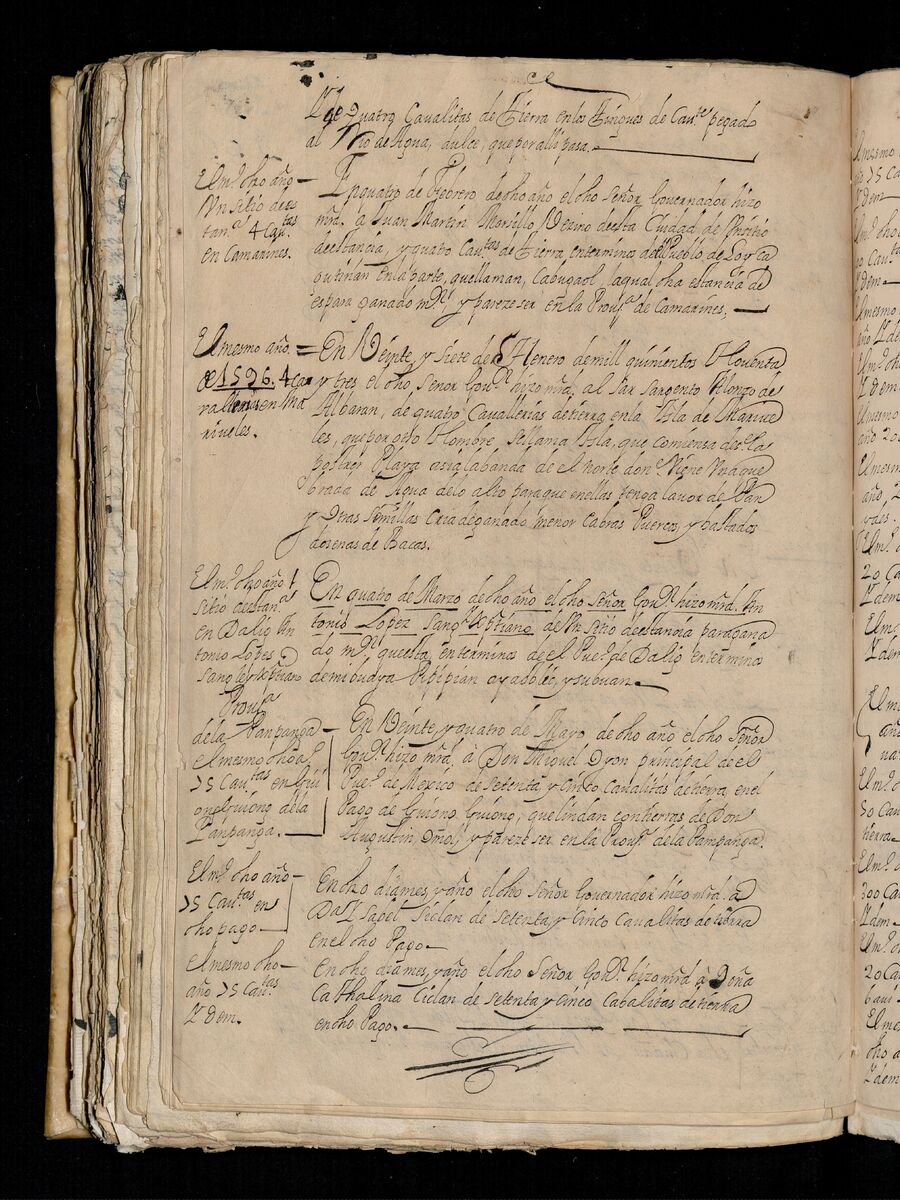 Y de quatro Cavalitas de Tierra enlos Tingues de Cau.te pegado
al Rio de Agua, dulce, que por alli pasa.
El m.º dho año
Vn sitio de es
tan.ª 4 Cau.tas
en Camarines.
En quatro de Febrero de dho año el dho Señor Governador hizo
mrd. a Juan Martin Morsillo Vezino desta Ciudad de Vn sitio
de estancia, y quatro Cau.tas de Tierra en termino del Pueblo de
en la parte, que llaman, Cabugaol, la qual dha estancia
es para ganado m.or y pareze ser en la Prov.ª de Camarines,
El mesmo año.
de 1596. 4 Cau
vallerias en Ma
riveles.
En Veinte, y siete de Henero de mill quinientos Noventa
y tres el dho Señor Gov.or hizo mrd. al Sar Sargento Alonzo de
Albaran, de quatro Cavallerias de tierra en la Isla de Marive
les, que por otro Nombre se llama Isla, que comiensa desde la
Playa asia la banda de el norte donde Viene Vna que
brada de Agua de lo alto para que en ellas tenga lavor de Pan
y Otras Semillas Cria de ganado menor Cabras Puercos, y
dosenas de Bacas.
El m.º dho año 1
sitio de estan.ª
en Dalig An
tonio Lopes
Sangley Xptiano
En quatro de Marzo de dho año el dho Señor Gov.or hizo mrd. An
tonio Lopez Sang.y Xptiano de Vn sitio de estancia para gana
do m.or que esta en terminos de el Pue.º de Dalig en termino
de mibudya Pipipian ayadolec, y subuan.
Prov.ª
dela Panpanga
el mesmo dho a.º
75 Cau.tas en Gui
ono Guiono dela
Panpanga.
En Veinte, y quatro de Mayo de dho año el dho Señor
Gov.or hizo mrd. à Don Miguel Dyon principal de el
Pue.º de Mexico de Setenta, y Cinco Cavalitas de tierra en el
Pago de Guiono Guiono, que lindan con tierras de Don
Augustin, Omol, y pareze ser en la Prov.ª dela Pampanga.
El m.º dho año
75 Cau.tas en
dho pago
En dho dia mes, y año el dho Señor Governador hizo mrd. a
D.ª Isabel Siclan de Setenta, y Cinco Cavalitas de tierra
en el dho Pago
El mesmo dho
año 75 Cau.tas
Ydem.
En dho dia mes, y año el dho Señor Gov.or hizo mrd a Doña
Cathalina Ciclan de Setenta y Cinco Cabalitas de tierra
en dho Pago.